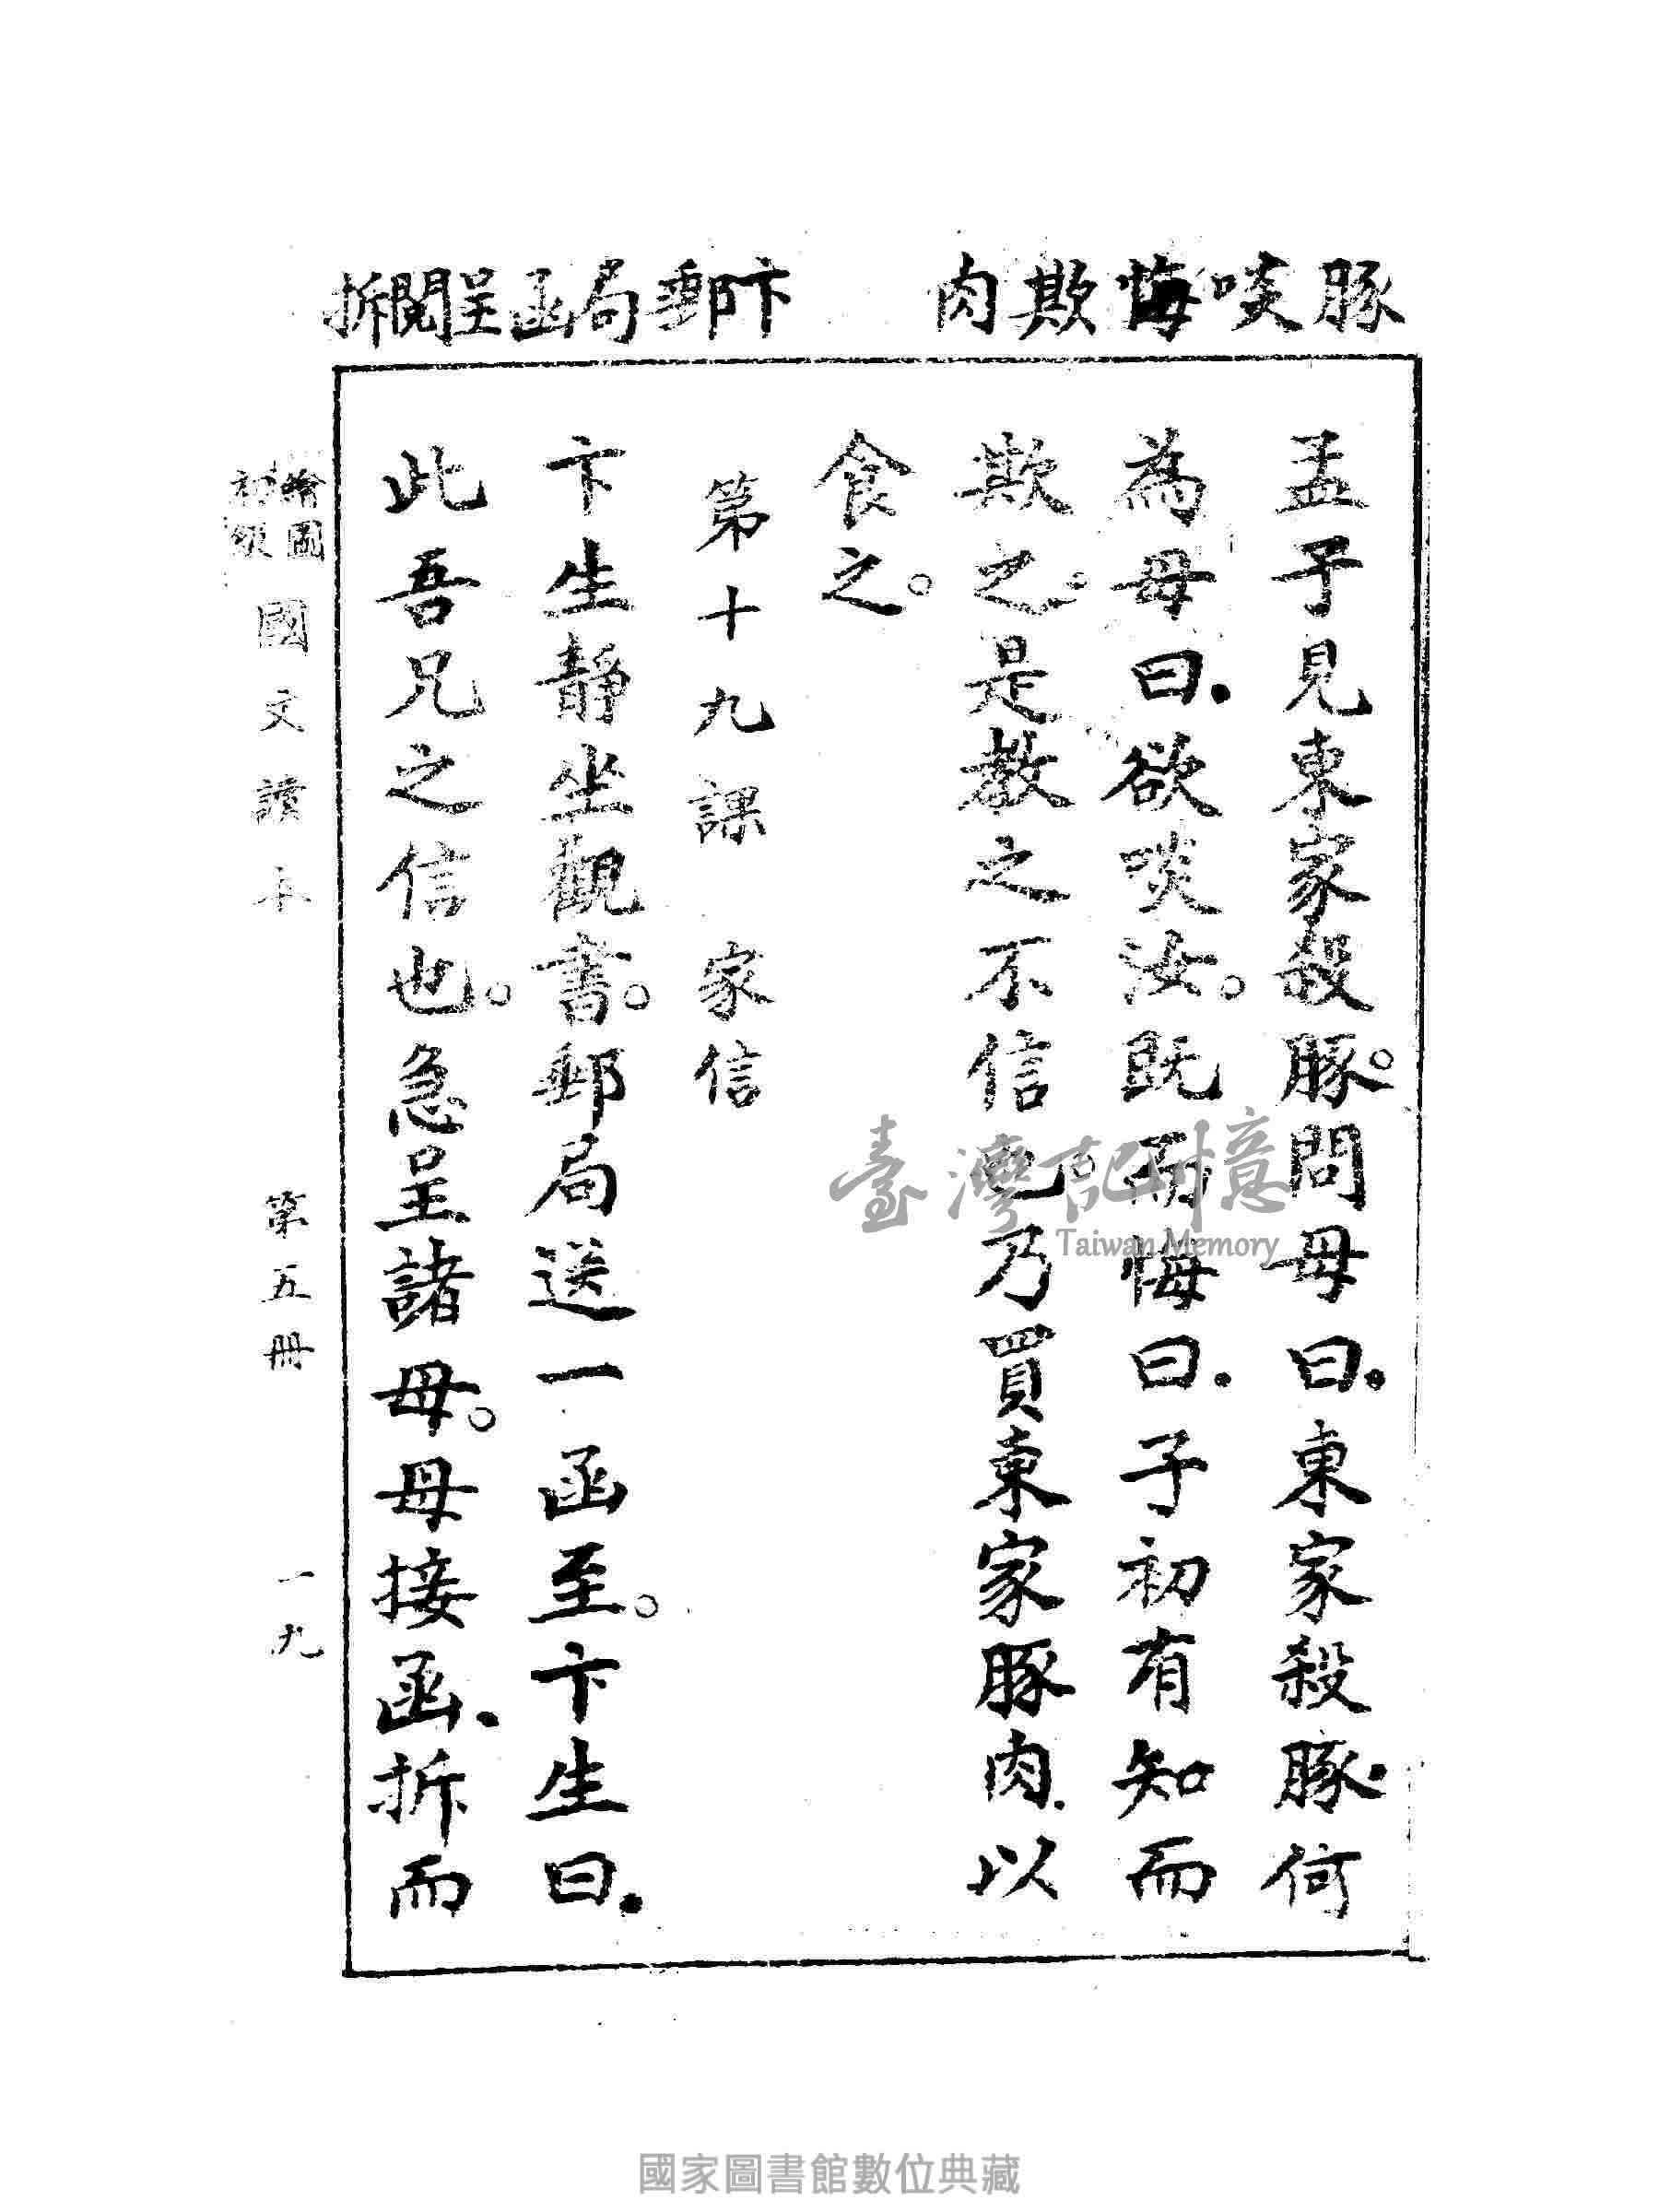 豚啖悔欺肉
卞郵局函呈閱拆
孟子見東家殺豚。問母曰.東家殺豚.何
為母曰.欲啖汝。既而悔曰.子初有知而
欺之。是教之不信也。乃買東家豚肉.以
食之。
第十九課 家信
卞生靜坐觀書。郵局送一函至。卞生曰.
此吾兄之信也。急呈諸母。母接函.拆而
繪圖
初級
國文讀本 第五冊 一九
臺灣記憶
Taiwan Memory
國家圖書館數位典藏